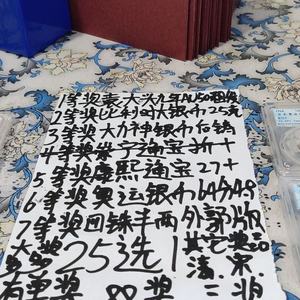 1等奖袁大头九年AU50
2等奖比利时大银币25克
3等奖大力神银币后铸
4等奖崇宁通宝折十
5等奖康熙通宝27+
6等奖奥运银币64分48
7等奖回铢半两外郭版
25选1
其它奖20
清.宋.
有事奖
88奖
二奖